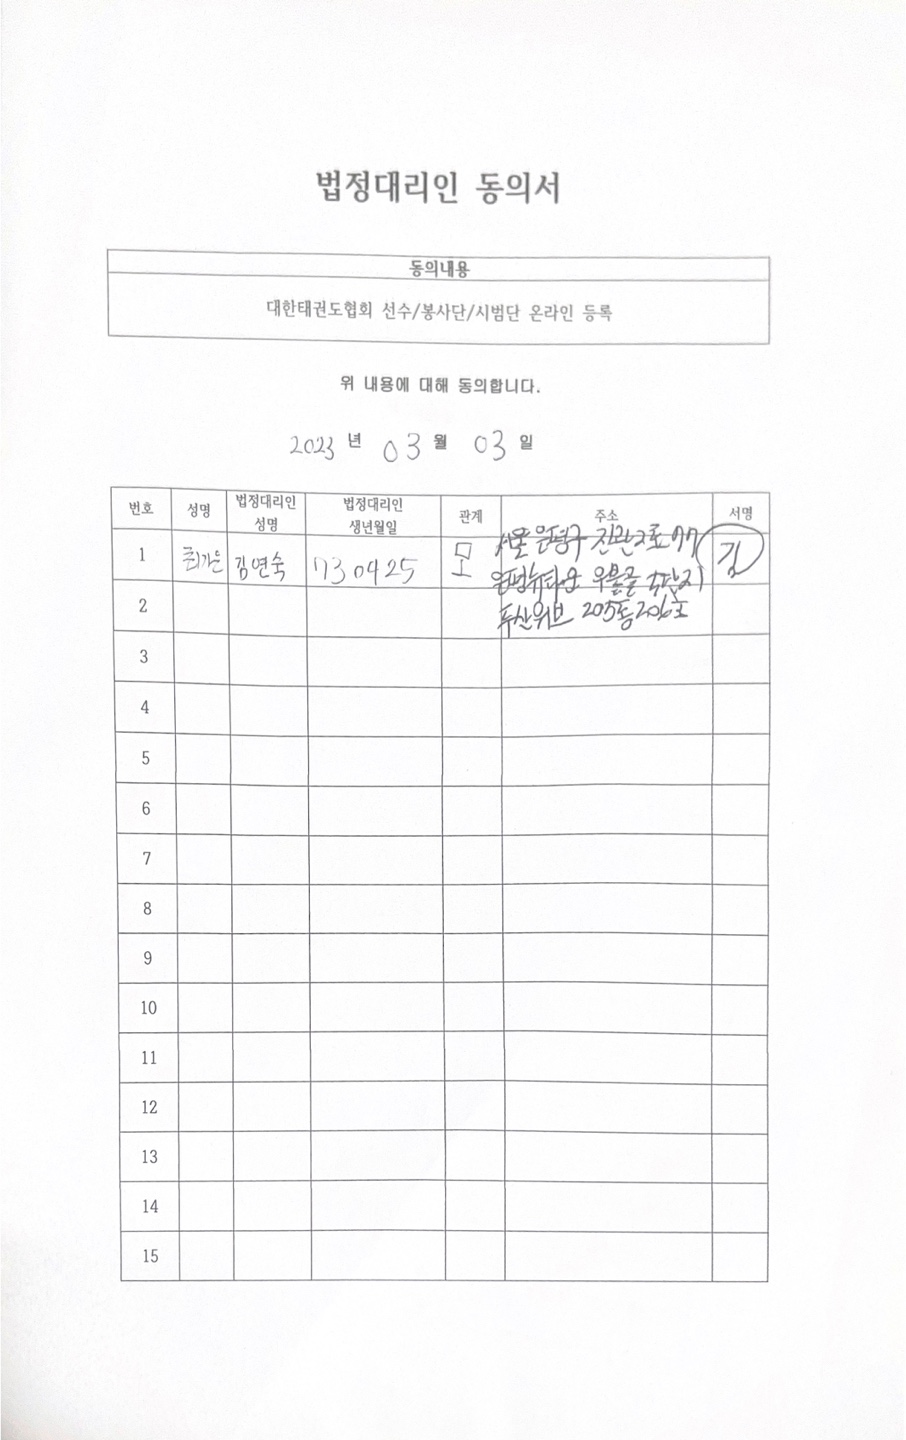 법정대리인 동의서
동의내용
대한태권도협회 선수/봉사단/시범단 온라인 등록
위 내용에 대해 동의합니다.
2023 년 03 월 03 일
번호 성명 법정대리인 성명 법정대리인 생년월일 관계 주소 서명
1 최가은 김연숙 730425 모 서울 은평구 진관2로 77 김
은평뉴타운 우물골 두산위브 205동 206호
2
3
4
5
6
7
8
9
10
11
12
13
14
15